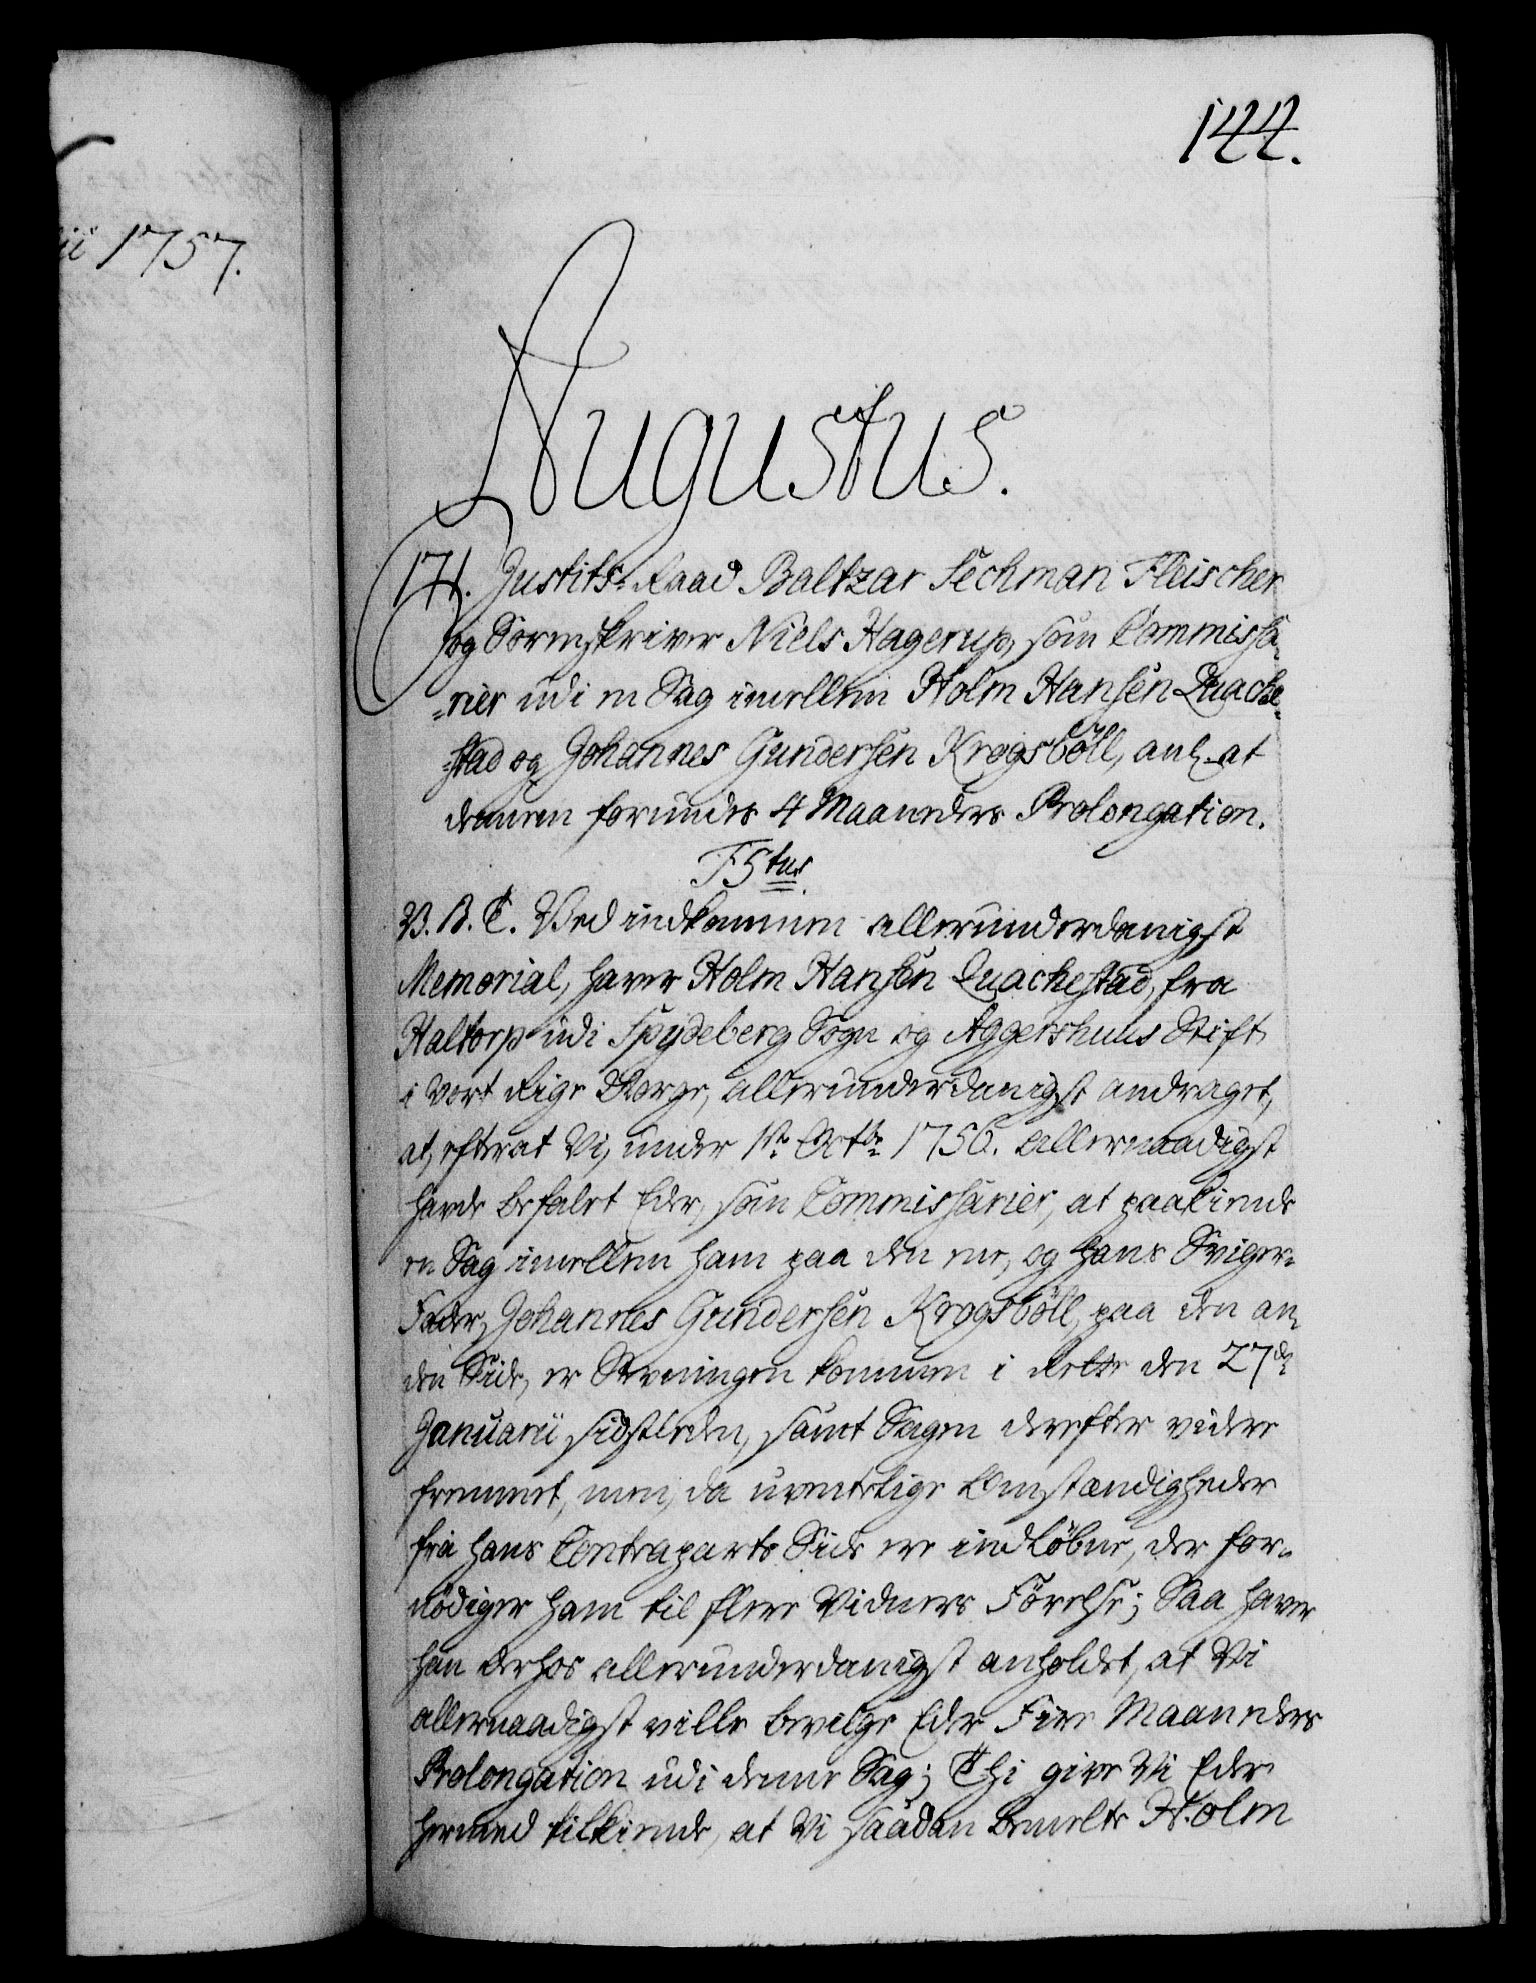 144.
ii 1757.
Augustus.
171. Justits-Raad Baltzar Sechman Fleischer
og Sorenskriver Niels Hagerup, som Commissa-
-rier udi en Sag imellem Holm Hansen Quache-
-stad og Johannes Gundersen Krogsböll, anl. at
dennem forundes 4 Maaneders Prolongation.
F5tus
V. B. T. Ved indkommen allerunderdanigst
Memorial, haver Holm Hansen Quachestad, fra
Haltorp udi Spydeberg Sogn og Aggershuus Stift
i Vort Rige Norge, allerunderdanigst andraget,
at, efterat Vi, under 1ste Octbr 1756. allernaadigst
havde befalet Eder, som Commissarier, at paakiende
en Sag imellem ham paa den ene, og hans Sviger-
Fader, Johannes Gundersen Krogsböll, paa den an-
den Side, er Stevningen kommen i Rette den 27de
Januarii sidstleden, samt Sagen derefter videre
fremmet, men, da uventelige Omstændigheder
fra hans Contraparts Side ere indløbne, der for-
nödiger ham til flere Vidners Förelse; Saa haver
han derhos allerunderdanigst anholdet, at Vi
allernaadigst ville bevilge Eder Fire Maaneders
Prolongation udi denne Sag; Thi give Vi Eder
hermed tilkiende, at Vi saadan bemelte Holm